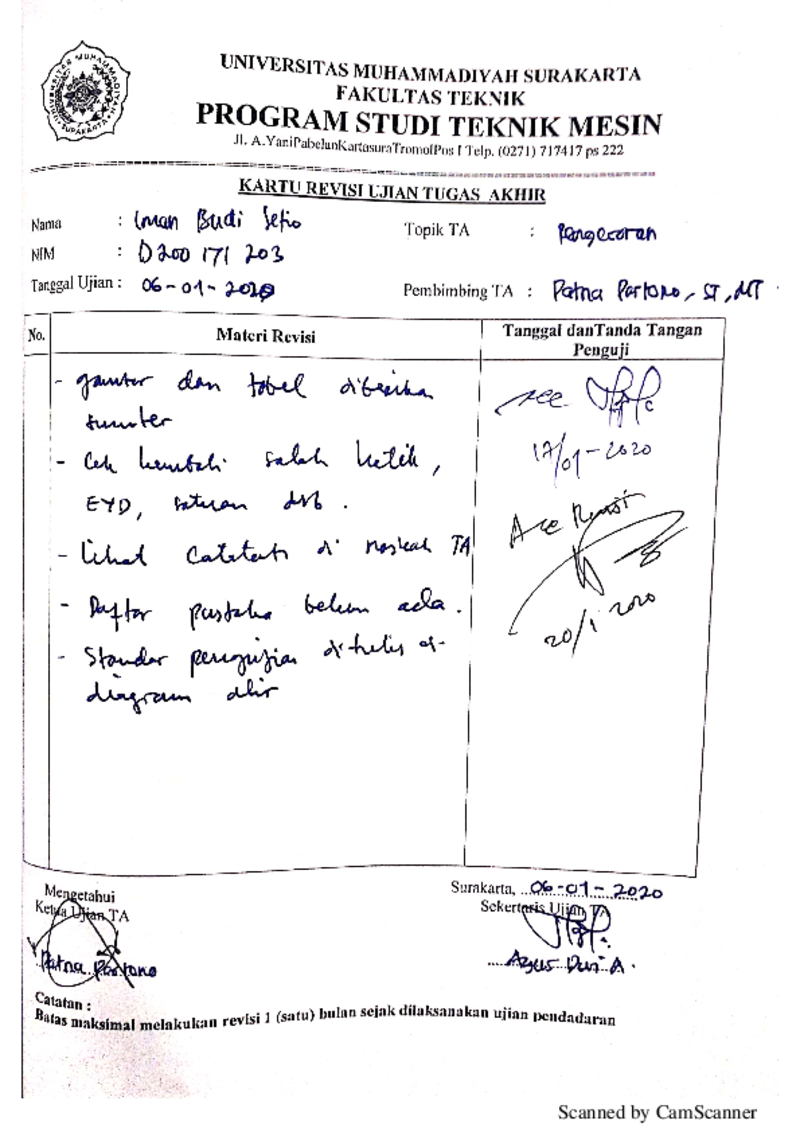 UNIVERSITAS MUHAMMADIYAH SURAKARTA
FAKULTAS TEKNIK
PROGRAM STUDI TEKNIK MESIN
Jl. A.YaniPabelanKartasuraTromolPos I Telp. (0271) 717417 ps 222
KARTU REVISI UJIAN TUGAS AKHIR
Nama : Iman Budi Setio
Topik TA : Pengecoran
NIM : D200 171 203
Tanggal Ujian : 06-01-2020
Pembimbing TA : Patna Partono, ST, MT
No. Materi Revisi Tanggal danTanda Tangan
Penguji
- gambar dan tabel diberikan
sumber
- Cek kembali salah ketik,
EYD, satuan dsb.
- Lihat Catatan di naskah TA
- Daftar pustaka belum ada.
- Standar pengujian ditulis di
diagram alir
acc
17/01-2020
Acc Revisi
20/1 2020
Mengetahui
Ketua Ujian TA
Patna Partono
Surakarta, 06-01-2020
Sekertaris Ujian TA
Agus Dwi A.
Catatan :
Batas maksimal melakukan revisi 1 (satu) bulan sejak dilaksanakan ujian pendadaran
Scanned by CamScanner